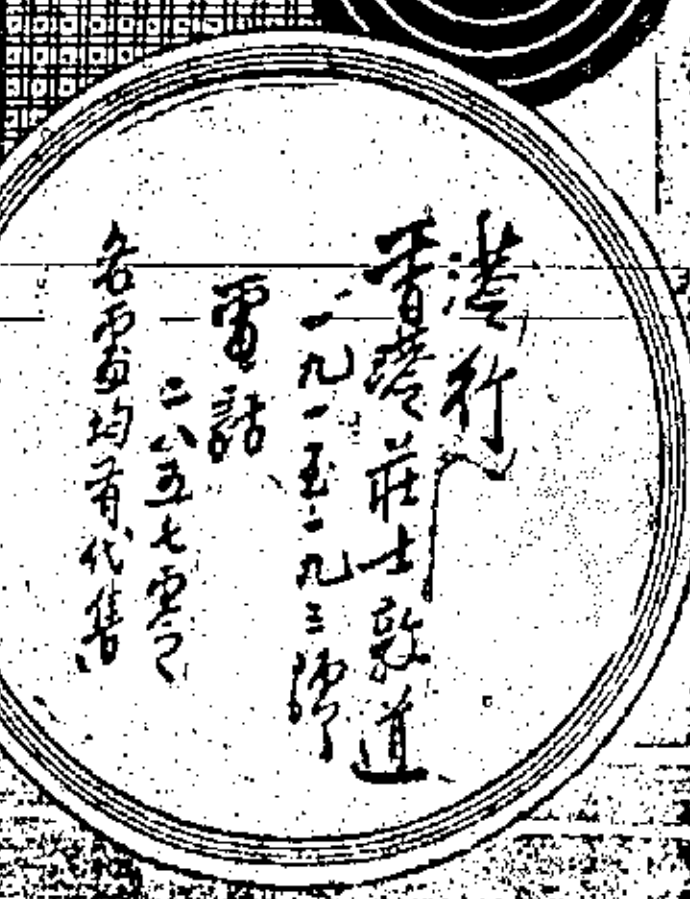 港行
香港莊士敦道
一九一至一九三號
電話
二八五七零
各電均有代售